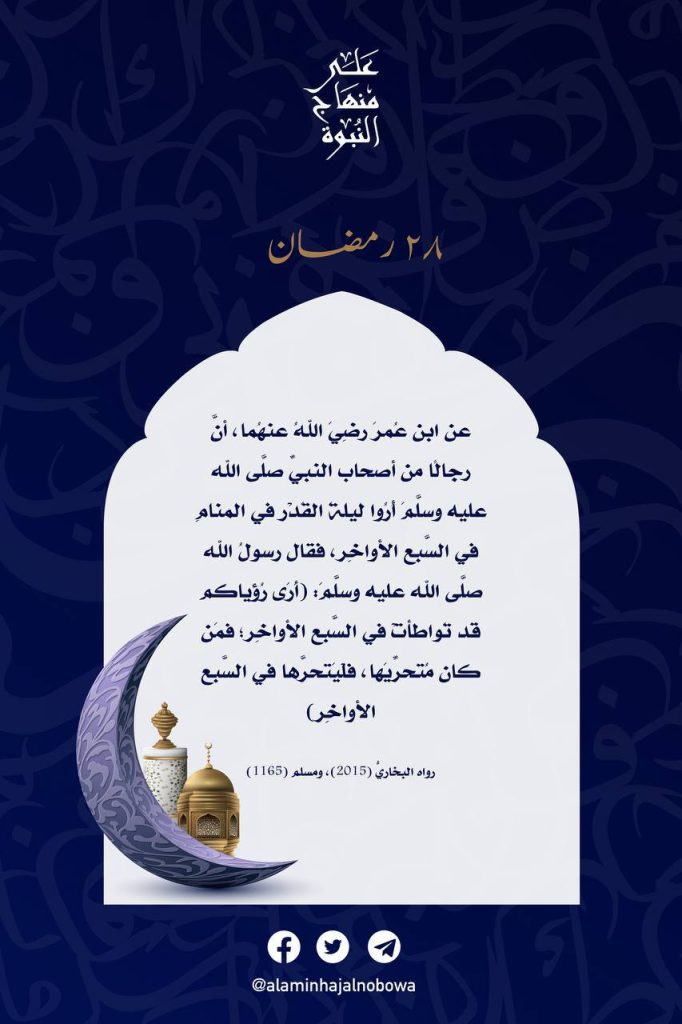 عَلَى
مِنهَاجِ
النُبُوة
٢٨ رمضان
عن ابن عُمرَ رضِيَ اللهُ عنهُما، أنَّ
رجالًا من أصحاب النبيِّ صلَّى الله
عليه وسلَّمَ أُرُوا ليلةَ القدْر في المنامِ
في السَّبع الأواخِرِ، فقال رسولُ الله
صلَّى الله عليه وسلَّمَ: (أرَى رُؤياكم
قد تواطأتْ في السَّبع الأواخِرِ؛ فمَن
كان مُتحرِّيَها، فلْيَتحرَّها في السَّبع
الأواخِرِ)
رواه البخاريُّ (2015)، ومسلم (1165)
@alaminhajalnobowa